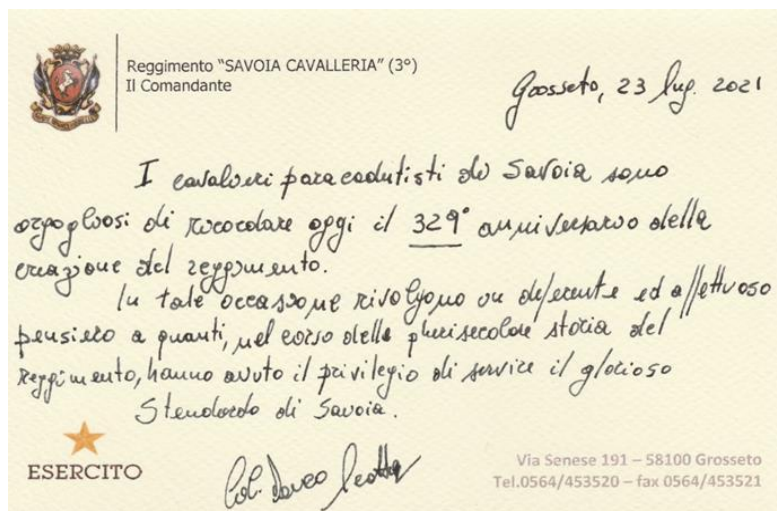 Reggimento "SAVOIA CAVALLERIA" (3°)
Il Comandante
Grosseto, 23 lug. 2021
I cavalieri paracadutisti di Savoia sono
orgogliosi di ricordare oggi il 329° anniversario della
creazione del reggimento.
In tale occasione rivolgono un deferente ed affettuoso
pensiero a quanti, nel corso della plurisecolare storia del
Reggimento, hanno avuto il privilegio di servire il glorioso
Stendardo di Savoia.
ESERCITO
Col.
Via Senese 191 – 58100 Grosseto
Tel.0564/453520 – fax 0564/453521